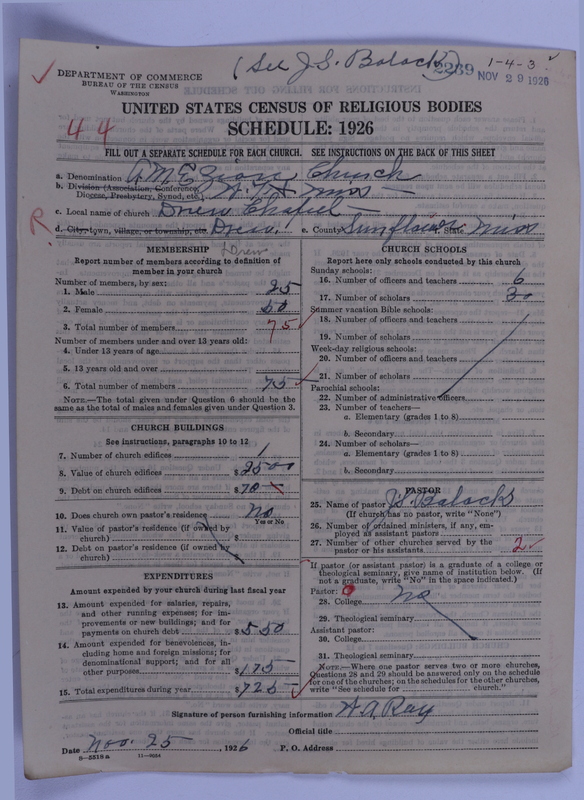 (See J. S. Balock) 2239 1-4-3
NOV 29 1926
DEPARTMENT OF COMMERCE
BUREAU OF THE CENSUS
WASHINGTON
UNITED STATES CENSUS OF RELIGIOUS BODIES
44
SCHEDULE: 1926
FILL OUT A SEPARATE SCHEDULE FOR EACH CHURCH. SEE INSTRUCTIONS ON THE BACK OF THIS SHEET
a. Denomination A M E Zion Church
b. Division (Association, Conference, Diocese, Presbytery, Synod, etc.) Miss
c. Local name of church Drew Chapel
R d. City, town, village, or township, etc. Drew e. County Sunflower f. State Miss
Drew
MEMBERSHIP
Report number of members according to definition of
member in your church
Number of members, by sex:
1. Male 25
2. Female 50
3. Total number of members 75
Number of members under and over 13 years old:
4. Under 13 years of age
5. 13 years old and over
6. Total number of members 75
NOTE.—The total given under Question 6 should be the
same as the total of males and females given under Question 3.
CHURCH BUILDINGS
See instructions, paragraphs 10 to 12
7. Number of church edifices 1
8. Value of church edifices $2500
9. Debt on church edifices $70
10. Does church own pastor's residence No
Yes or No
11. Value of pastor's residence (if owned by
church) $
12. Debt on pastor's residence (if owned by
church)
EXPENDITURES
Amount expended by your church during last fiscal year
13. Amount expended for salaries, repairs,
and other running expenses; for im-
provements or new buildings; and for
payments on church debt $550
14. Amount expended for benevolences, in-
cluding home and foreign missions; for
denominational support; and for all
other purposes $175
15. Total expenditures during year $725
CHURCH SCHOOLS
Report here only schools conducted by this church
Sunday schools:
16. Number of officers and teachers 6
17. Number of scholars 30
Summer vacation Bible schools:
18. Number of officers and teachers
19. Number of scholars
Week-day religious schools:
20. Number of officers and teachers
21. Number of scholars
Parochial schools:
22. Number of administrative officers
23. Number of teachers—
a. Elementary (grades 1 to 8)
b. Secondary
24. Number of scholars—
a. Elementary (grades 1 to 8)
b. Secondary
PASTOR
25. Name of pastor J. S. Balock
(If church has no pastor, write "None")
26. Number of ordained ministers, if any, em-
ployed as assistant pastors
27. Number of other churches served by the
pastor or his assistants 2
If pastor (or assistant pastor) is a graduate of a college or
theological seminary, give name of institution below. (If
not a graduate, write "No" in the space indicated.)
Pastor:
28. College No
29. Theological seminary
Assistant pastor:
30. College
31. Theological seminary
NOTE.—Where one pastor serves two or more churches,
Questions 28 and 29 should be answered only on the schedule
for one of the churches; on the schedules for the other churches,
write "See schedule for church."
Signature of person furnishing information H. A. Ray
Official title
Date Nov. 25, 1926 P. O. Address
8—5518a 11—9034